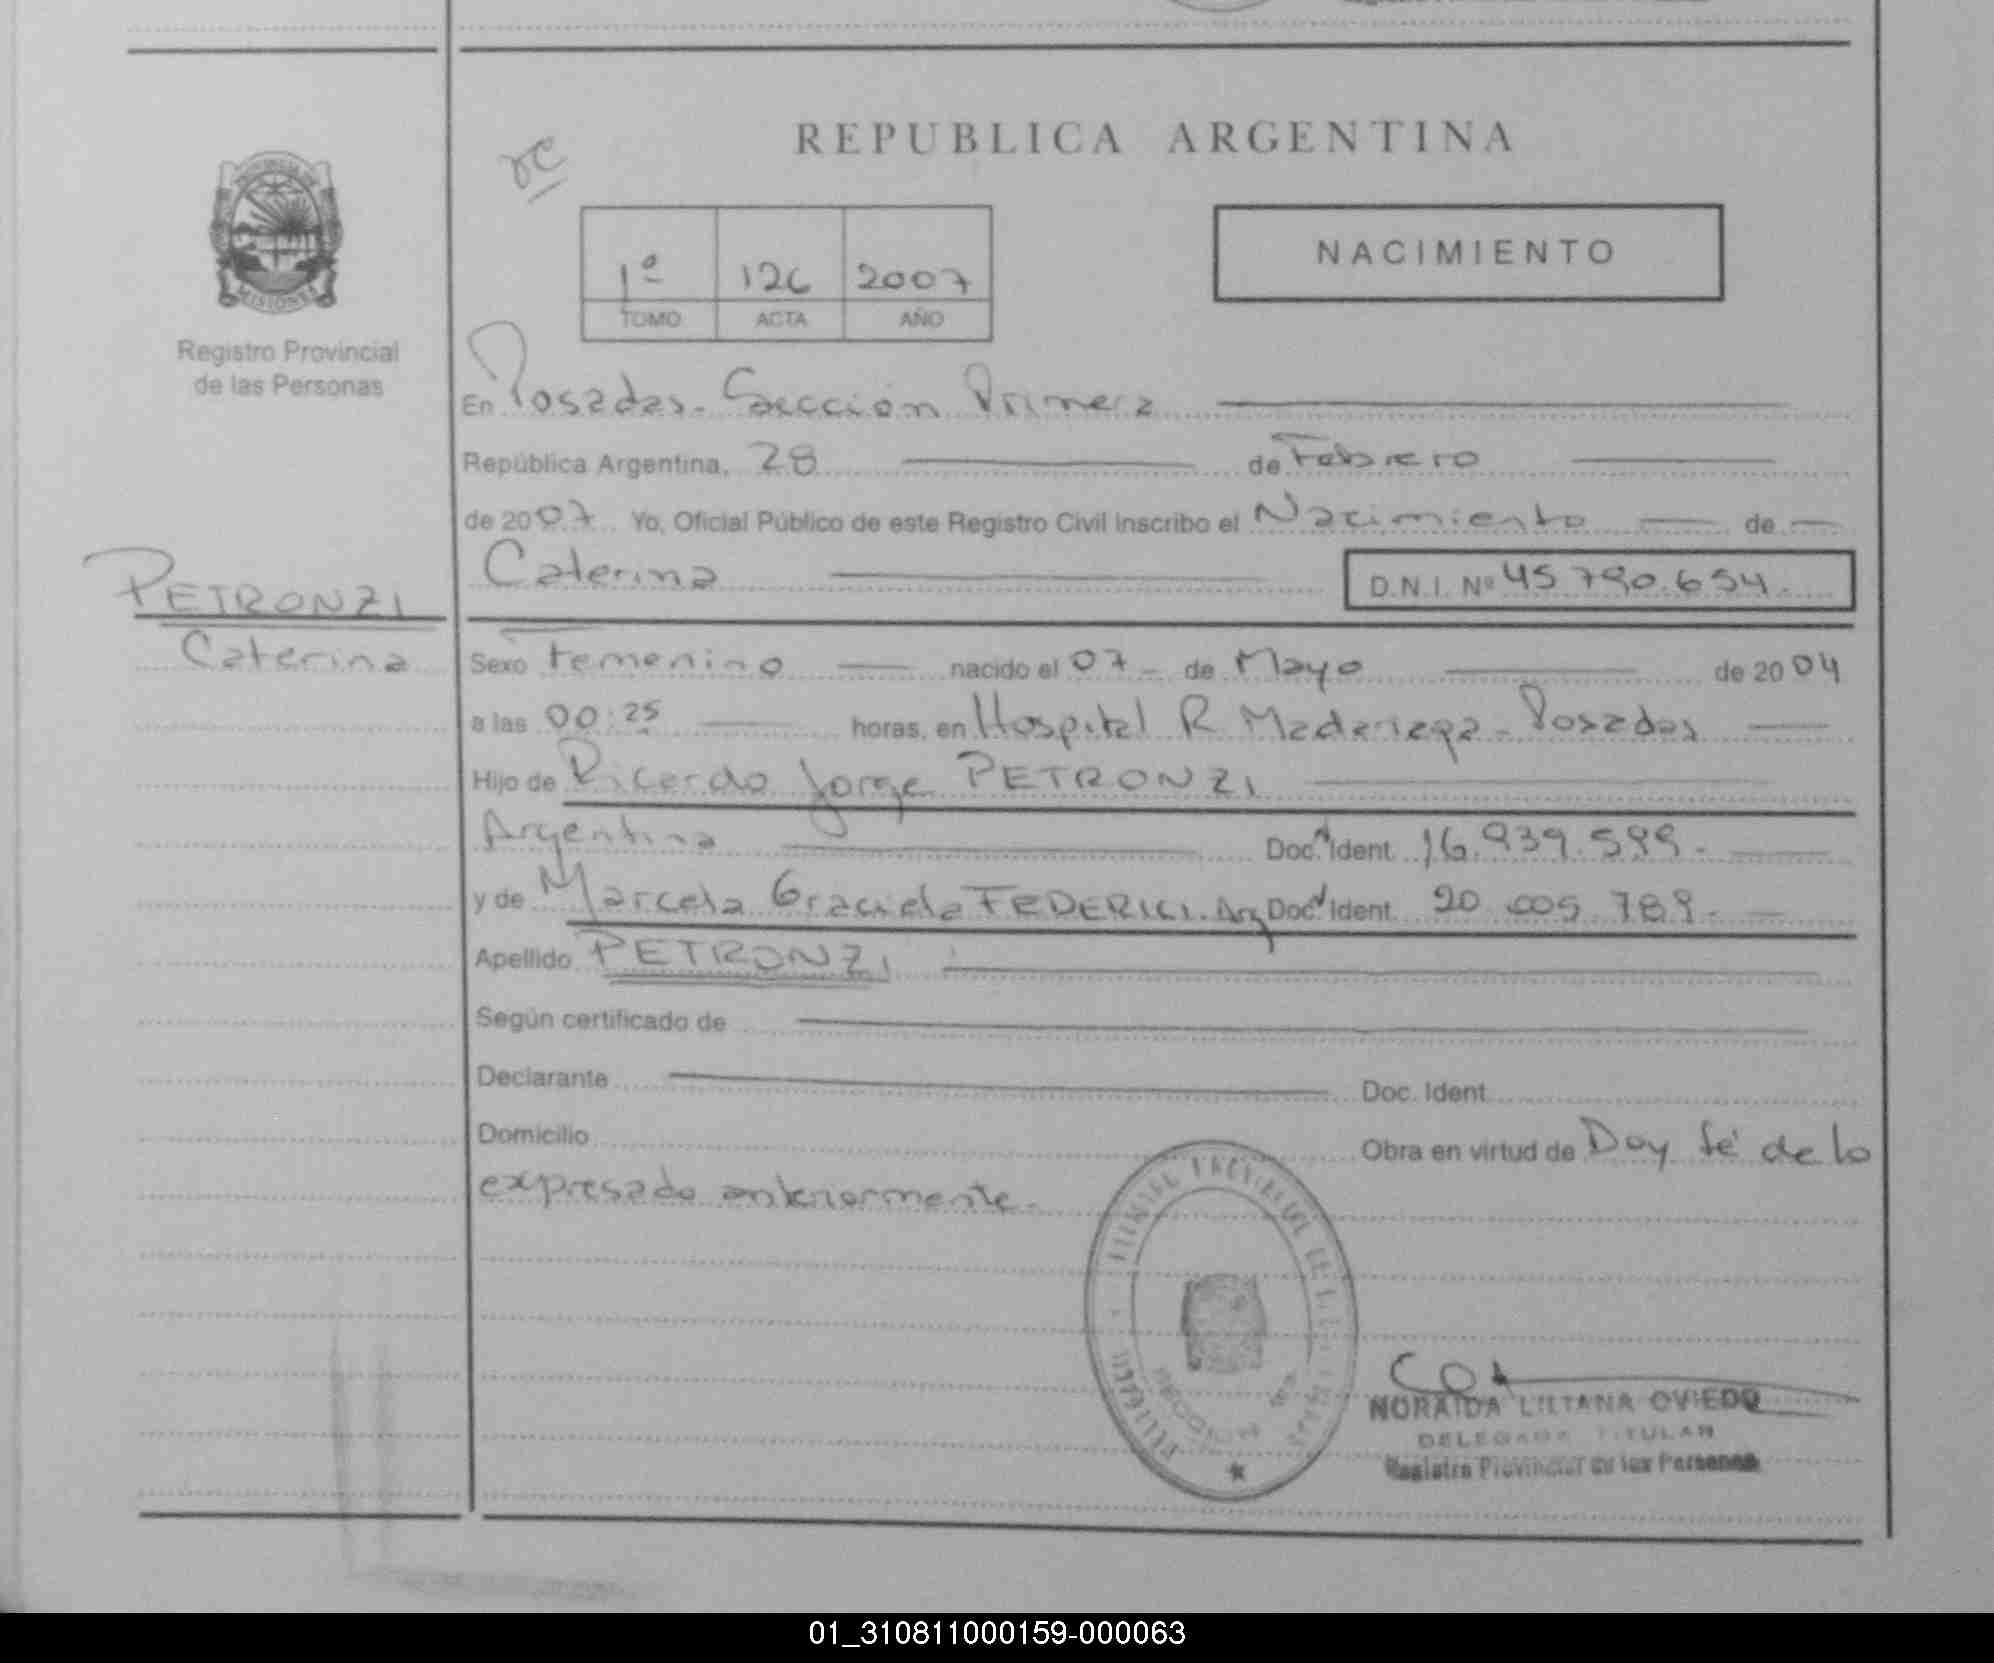 REPUBLICA ARGENTINA
NACIMIENTO
1ª 126 2007
TOMO ACTA AÑO
MISIONES
Registro Provincial
de las Personas
En Posadas - Sección Primera
República Argentina, 28 de Febrero
de 2007 Yo, Oficial Público de este Registro Civil inscribo el Nacimiento de
Caterina D.N.I. Nº 45.790.654.
PETRONZI
Caterina
Sexo Femenino nacido el 07 - de Mayo de 2004
a las 00:25 horas, en Hospital R. Madariaga - Posadas
Hijo de Ricardo Jorge PETRONZI
Argentina Doc. Ident. 16.939.599.
y de Marcela Graciela FEDERICI. Arg Doc. Ident. 20.005.789.
Apellido PETRONZI
Según certificado de
Declarante Doc. Ident.
Domicilio Obra en virtud de Doy fé de lo
expresado anteriormente.
NORAIDA LILIANA OVIEDO
DELEGADA TITULAR
Registro Provincial de las Personas
01_310811000159-000063